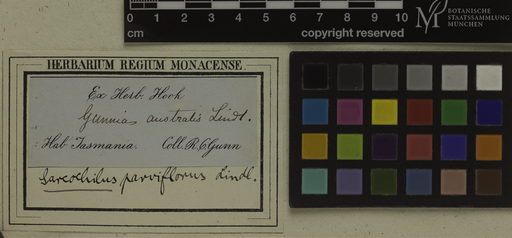 1 2 3 4 5 6 7 8 9 10
cm copyright reserved
M
BOTANISCHE
STAATSSAMMLUNG
MÜNCHEN
HERBARIUM REGIUM MONACENSE.
Ex Herb. Hook
Gunnia australis Lindl.
Hab Tasmania. Coll. R.C. Gunn
Sarcochilus parviflorus Lindl.